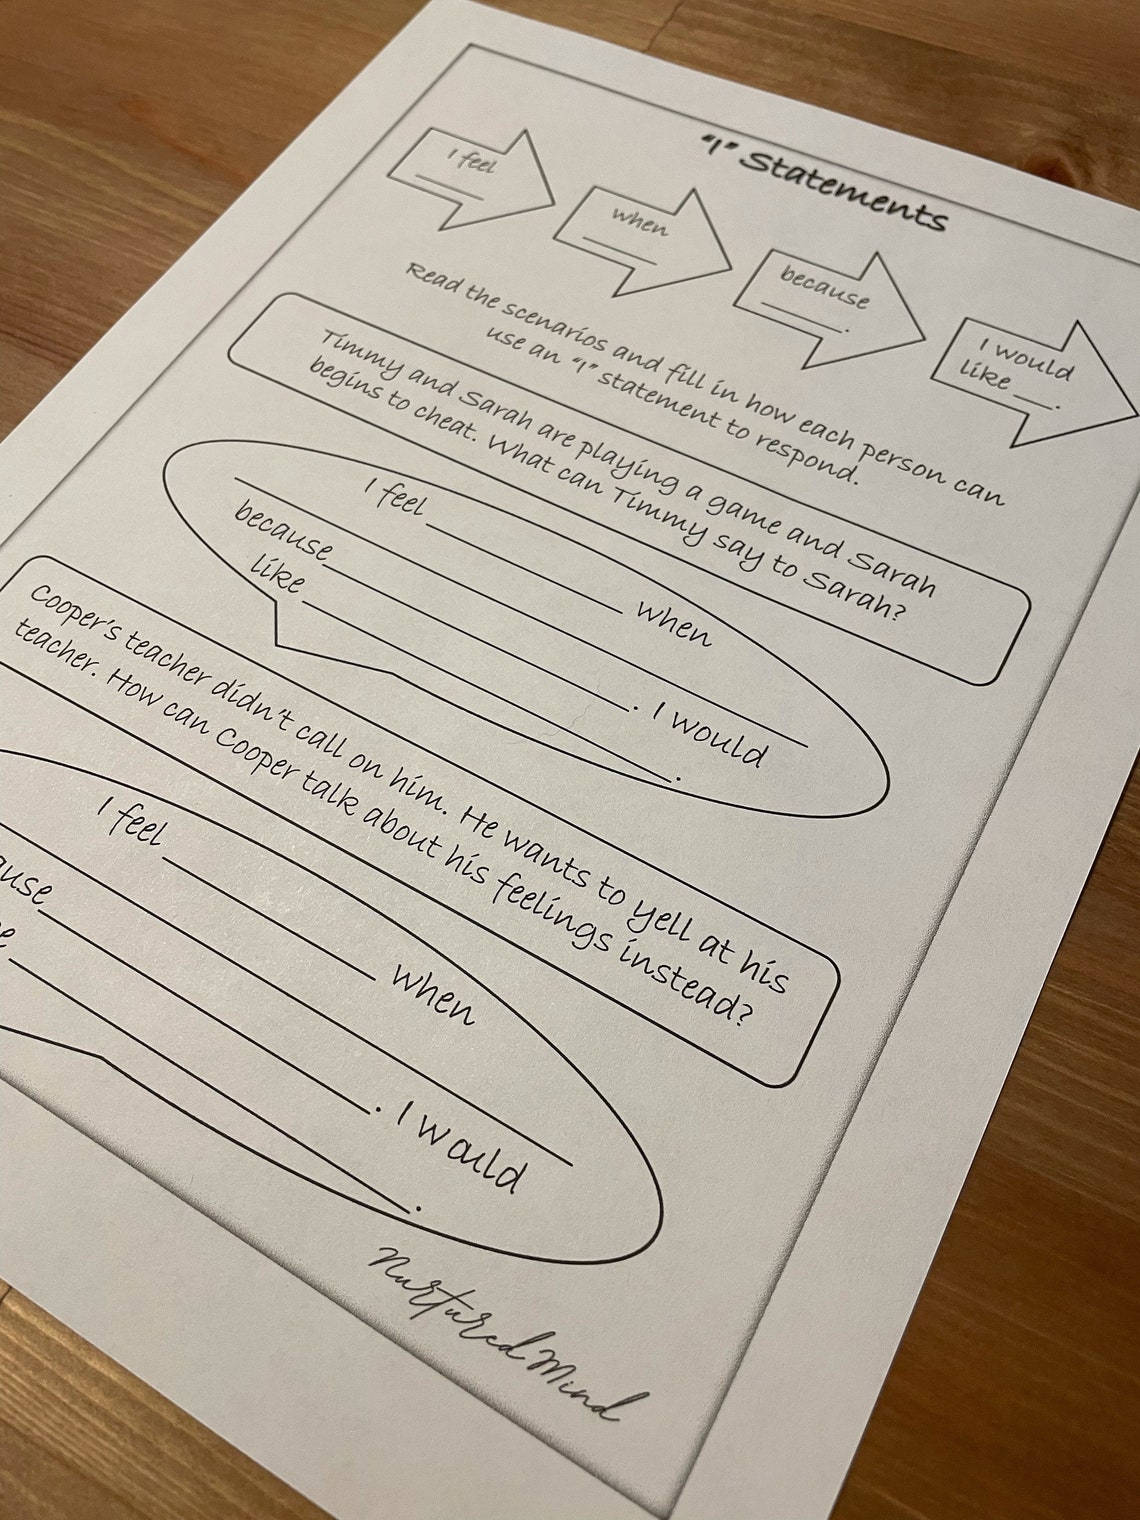 "I" Statements
I feel
____
when
____
because
____.
I would
like ___.
Read the scenarios and fill in how each person can
use an "I" statement to respond.
Timmy and Sarah are playing a game and Sarah
begins to cheat. What can Timmy say to Sarah?
I feel ____ when
____
because ____. I would
like ____.
Cooper's teacher didn't call on him. He wants to yell at his
teacher. How can Cooper talk about his feelings instead?
I feel ____ when
____
ause ____. I would
e ____.
Nurtured Mind